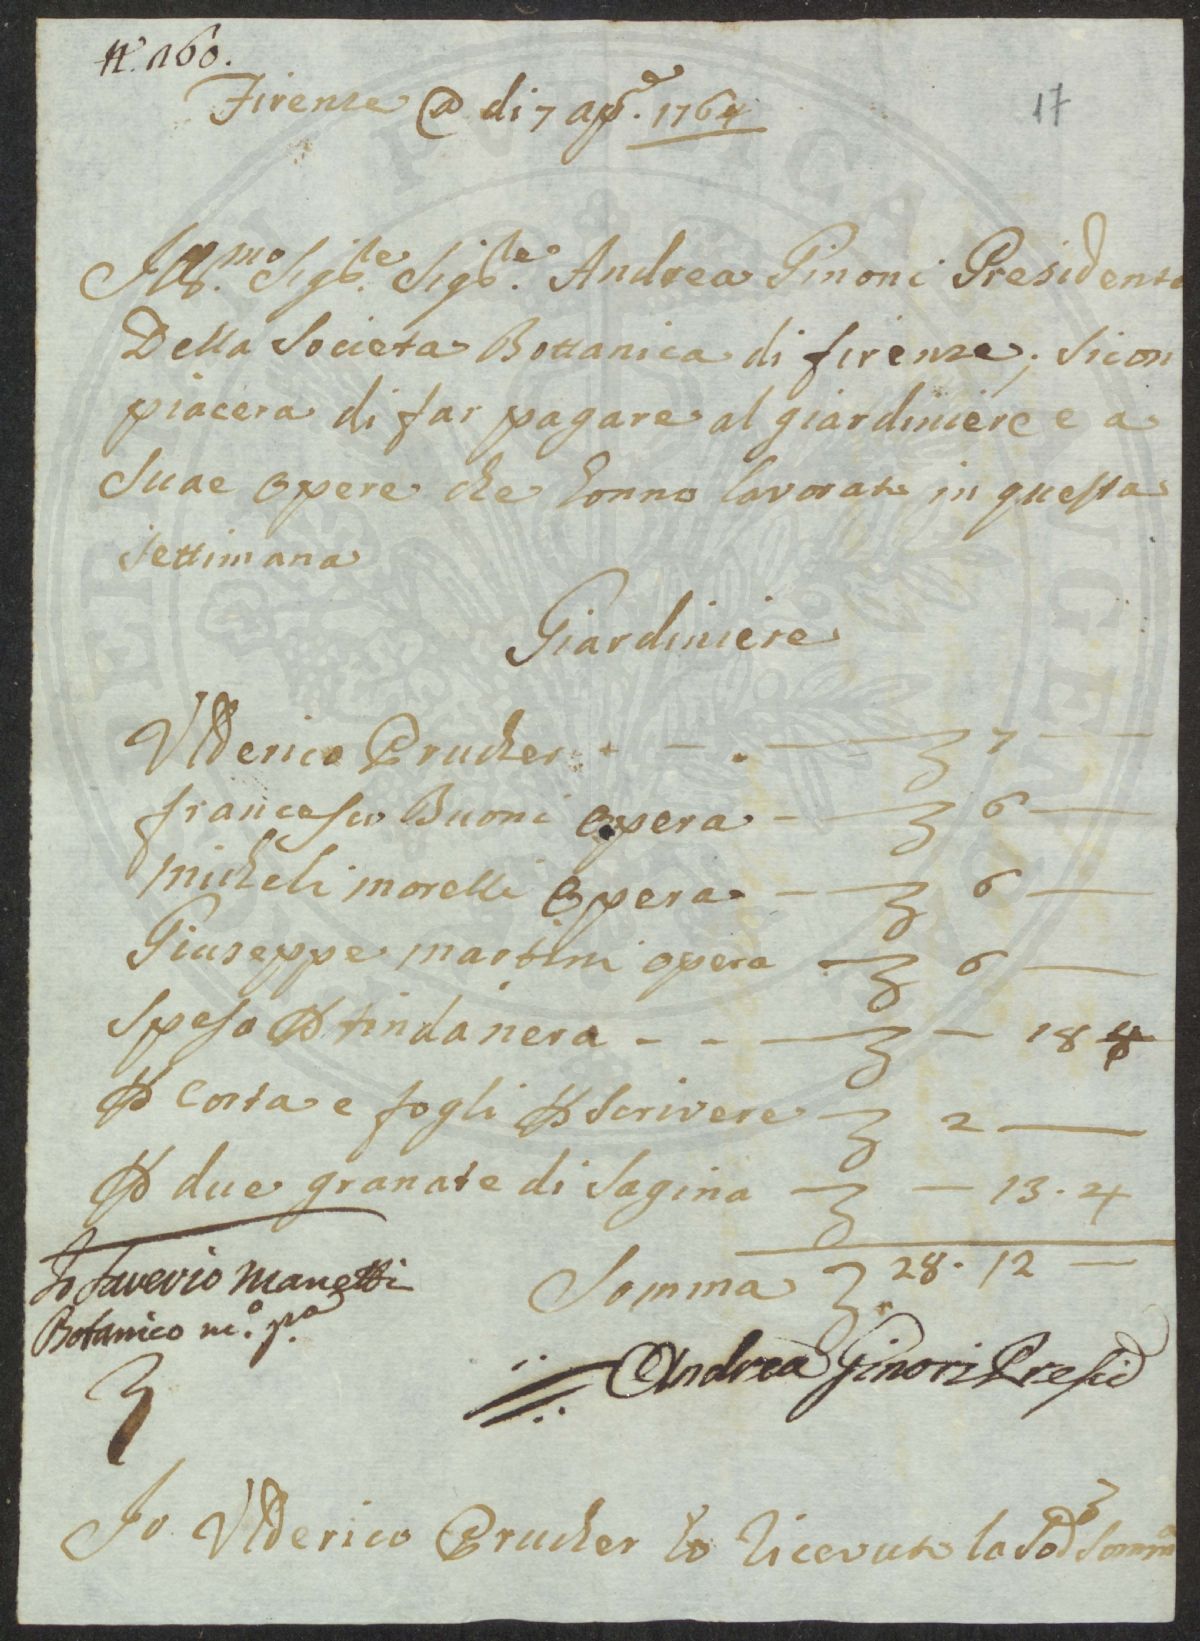 N. 160.
17
Firenze @ di 7 apr.e 1764
Ill.mo Sig.re Sig.re Andrea Ginoni Presidente
Della Societa Bottanica di firenze, si con
piacera di far pagare al giardiniere e a
suae opere che honno lavorato in questa
settimana
Giardiniere
Ulderico Prucher - - - 7 —
francesco Buoni opera - 6 —
micheli morelli opera - 6 —
Giuseppe martini opera 6 —
speso p tinda nera - - - — 18 8
p corta e fogli p scrivere 2 —
p due granate di sagina — 13. 4
Somma 28. 12 —
Io Saverio Manetti
Botanico m.o p.a
Andrea Ginori Presid
Io Ulderico Prucher ho ricevuto la Sod.a Somma